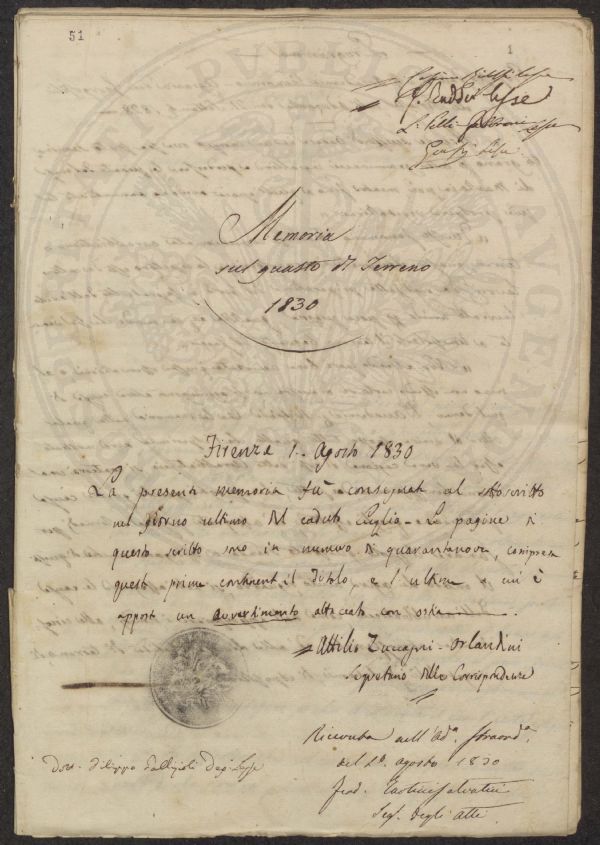 51
1
lesse
Lesse
Lesse
Lesse
Memoria
sul guasto di Terreno
1830
Firenze 1. Agosto 1830
La presente memoria fù consegnata al sottoscritto
nel giorno ultimo del caduto Luglio. Le pagine di
questo scritto sono in numero di quarantanove, compresa
questa prima continente il titolo, e l'ultima a cui è
apposto un avvertimento attaccato con ostia
Attilio Zuccagni-Orlandini
Segretario delle Corrispondenze
Ricevuta nell'Adª. straordª.
del dì. agosto 1830
Ferd. Tartini Salvatici
Seg. degli Atti
Dott. Filippo Gallizioli Lesse